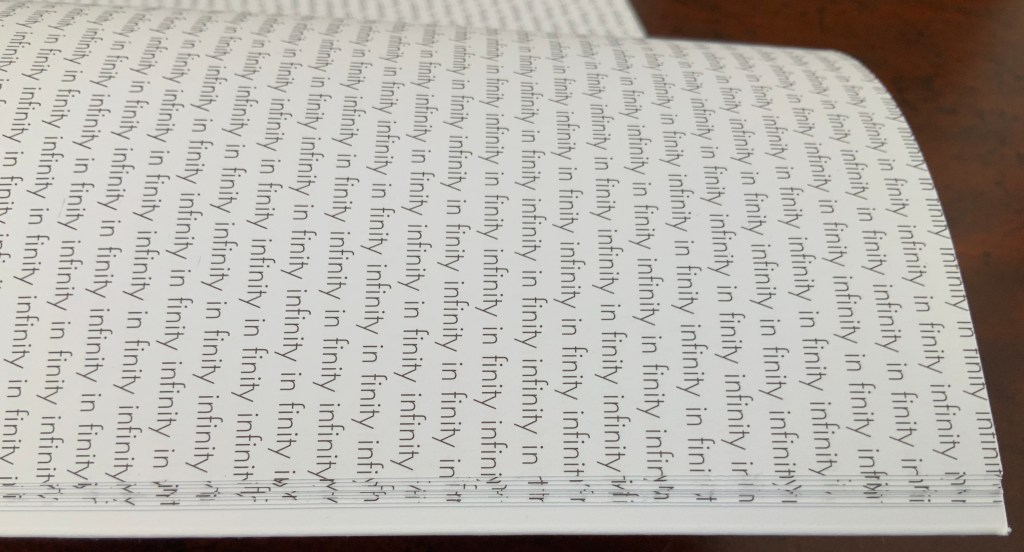 infinity in finity infinity in finity infinit
in finity infinity in finity infinity in finity infinity
in finity infinity in finity infinity in finity in
infinity in finity infinity in finity infinity in finity
in finity infinity in finity infinity in finity inf
infinity in finity infinity in finity infinity in finity
in finity infinity in finity infinity in finity infinit
finity infinity in finity infinity in finity infinity in
infinity in finity infinity in finity infinity in fini
in finity infinity in finity infinity in finity infin
infinity in finity infinity in finity infinity in finity
in finity infinity in finity infinity in finity infinit
infinity in finity infinity in finity infinity in
infinity in finity infinity in finity infinity in finity infin
infinity in finity infinity in finity infinity in
in finity infinity in finity infinity in finity infinity
infinity in finity infinity in finity infinity in finity infi
in finity infinity in finity infinity in finity infinity
infinity in finity infinity in finity infinity in finity
in finity infinity in finity infinity in finity infinit
infinity in finity infinity in finity infinity
in finity infinity in finity infinity in
infinity in finity infinity in finity infinity
infinity in finity infinity in finity
in finity infinity in finity infinity
infinity in finity